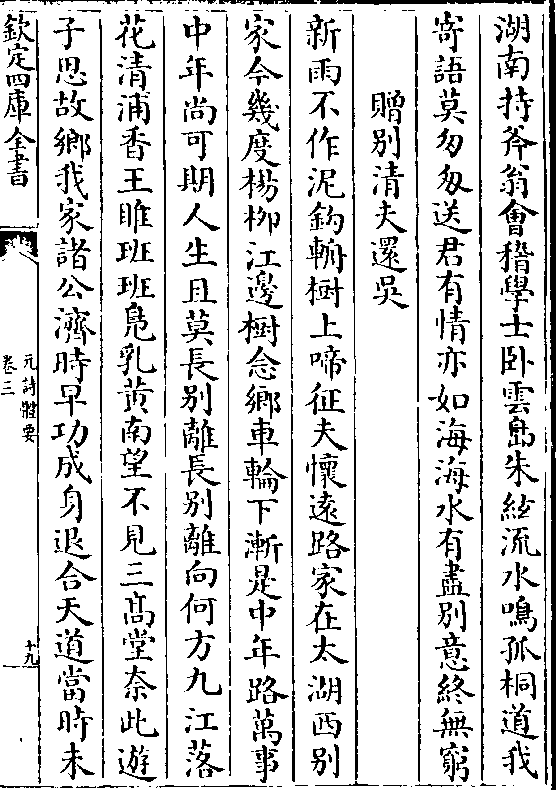 湖南持斧翁會稽學士卧雲島朱絃流水鳴孤桐道我
寄語莫匆匆送君有情亦如海海水有盡别意終無窮
贈别清夫還吳
新雨不作泥鈎輈樹上啼征夫懷逺路家在太湖西别
家今幾度楊栁江邊樹念鄉車輪下漸是中年路萬事
中年尚可期人生且莫長别離長别離向何方九江落
花清浦香王雎班班鳬乳黄南望不見三髙堂奈此遊
子思故鄉我家諸公濟時早功成身退合天道當時未
欽定四庫全書
元詩體要
卷三
十九